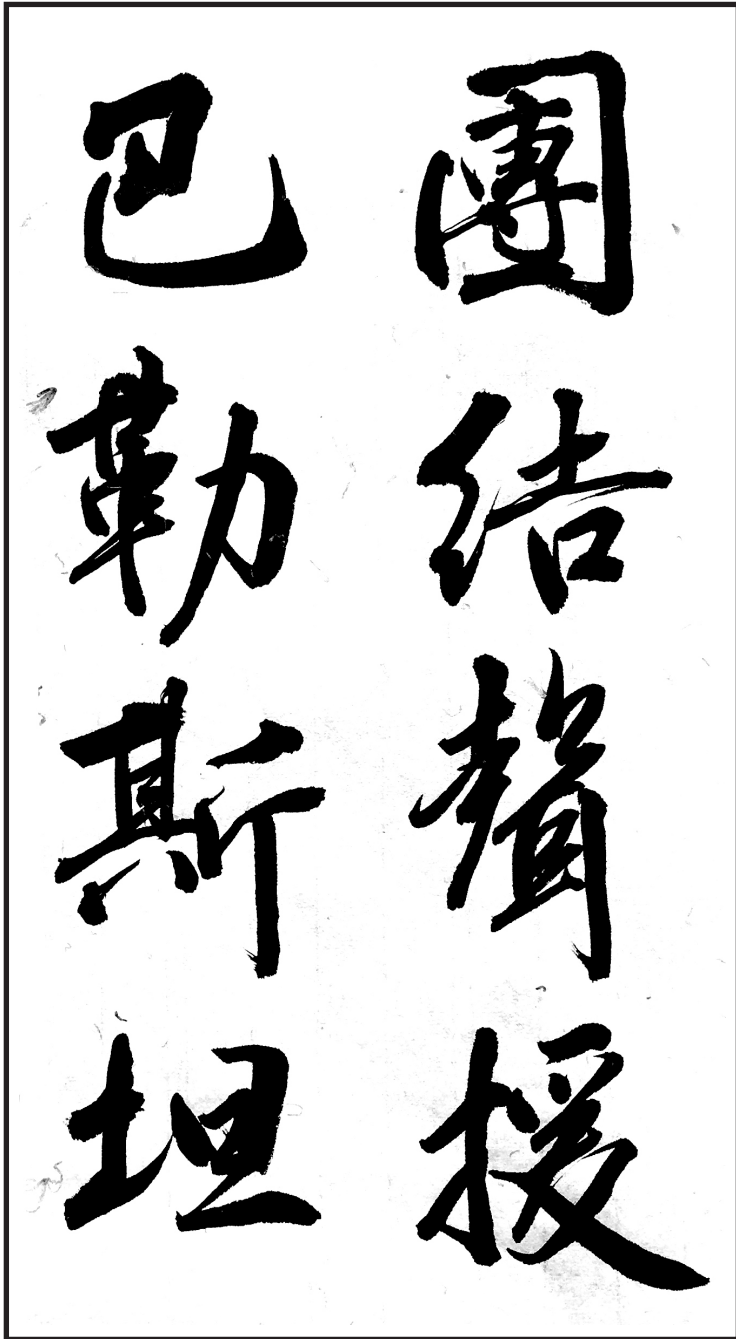 團結聲援
巴勒斯坦